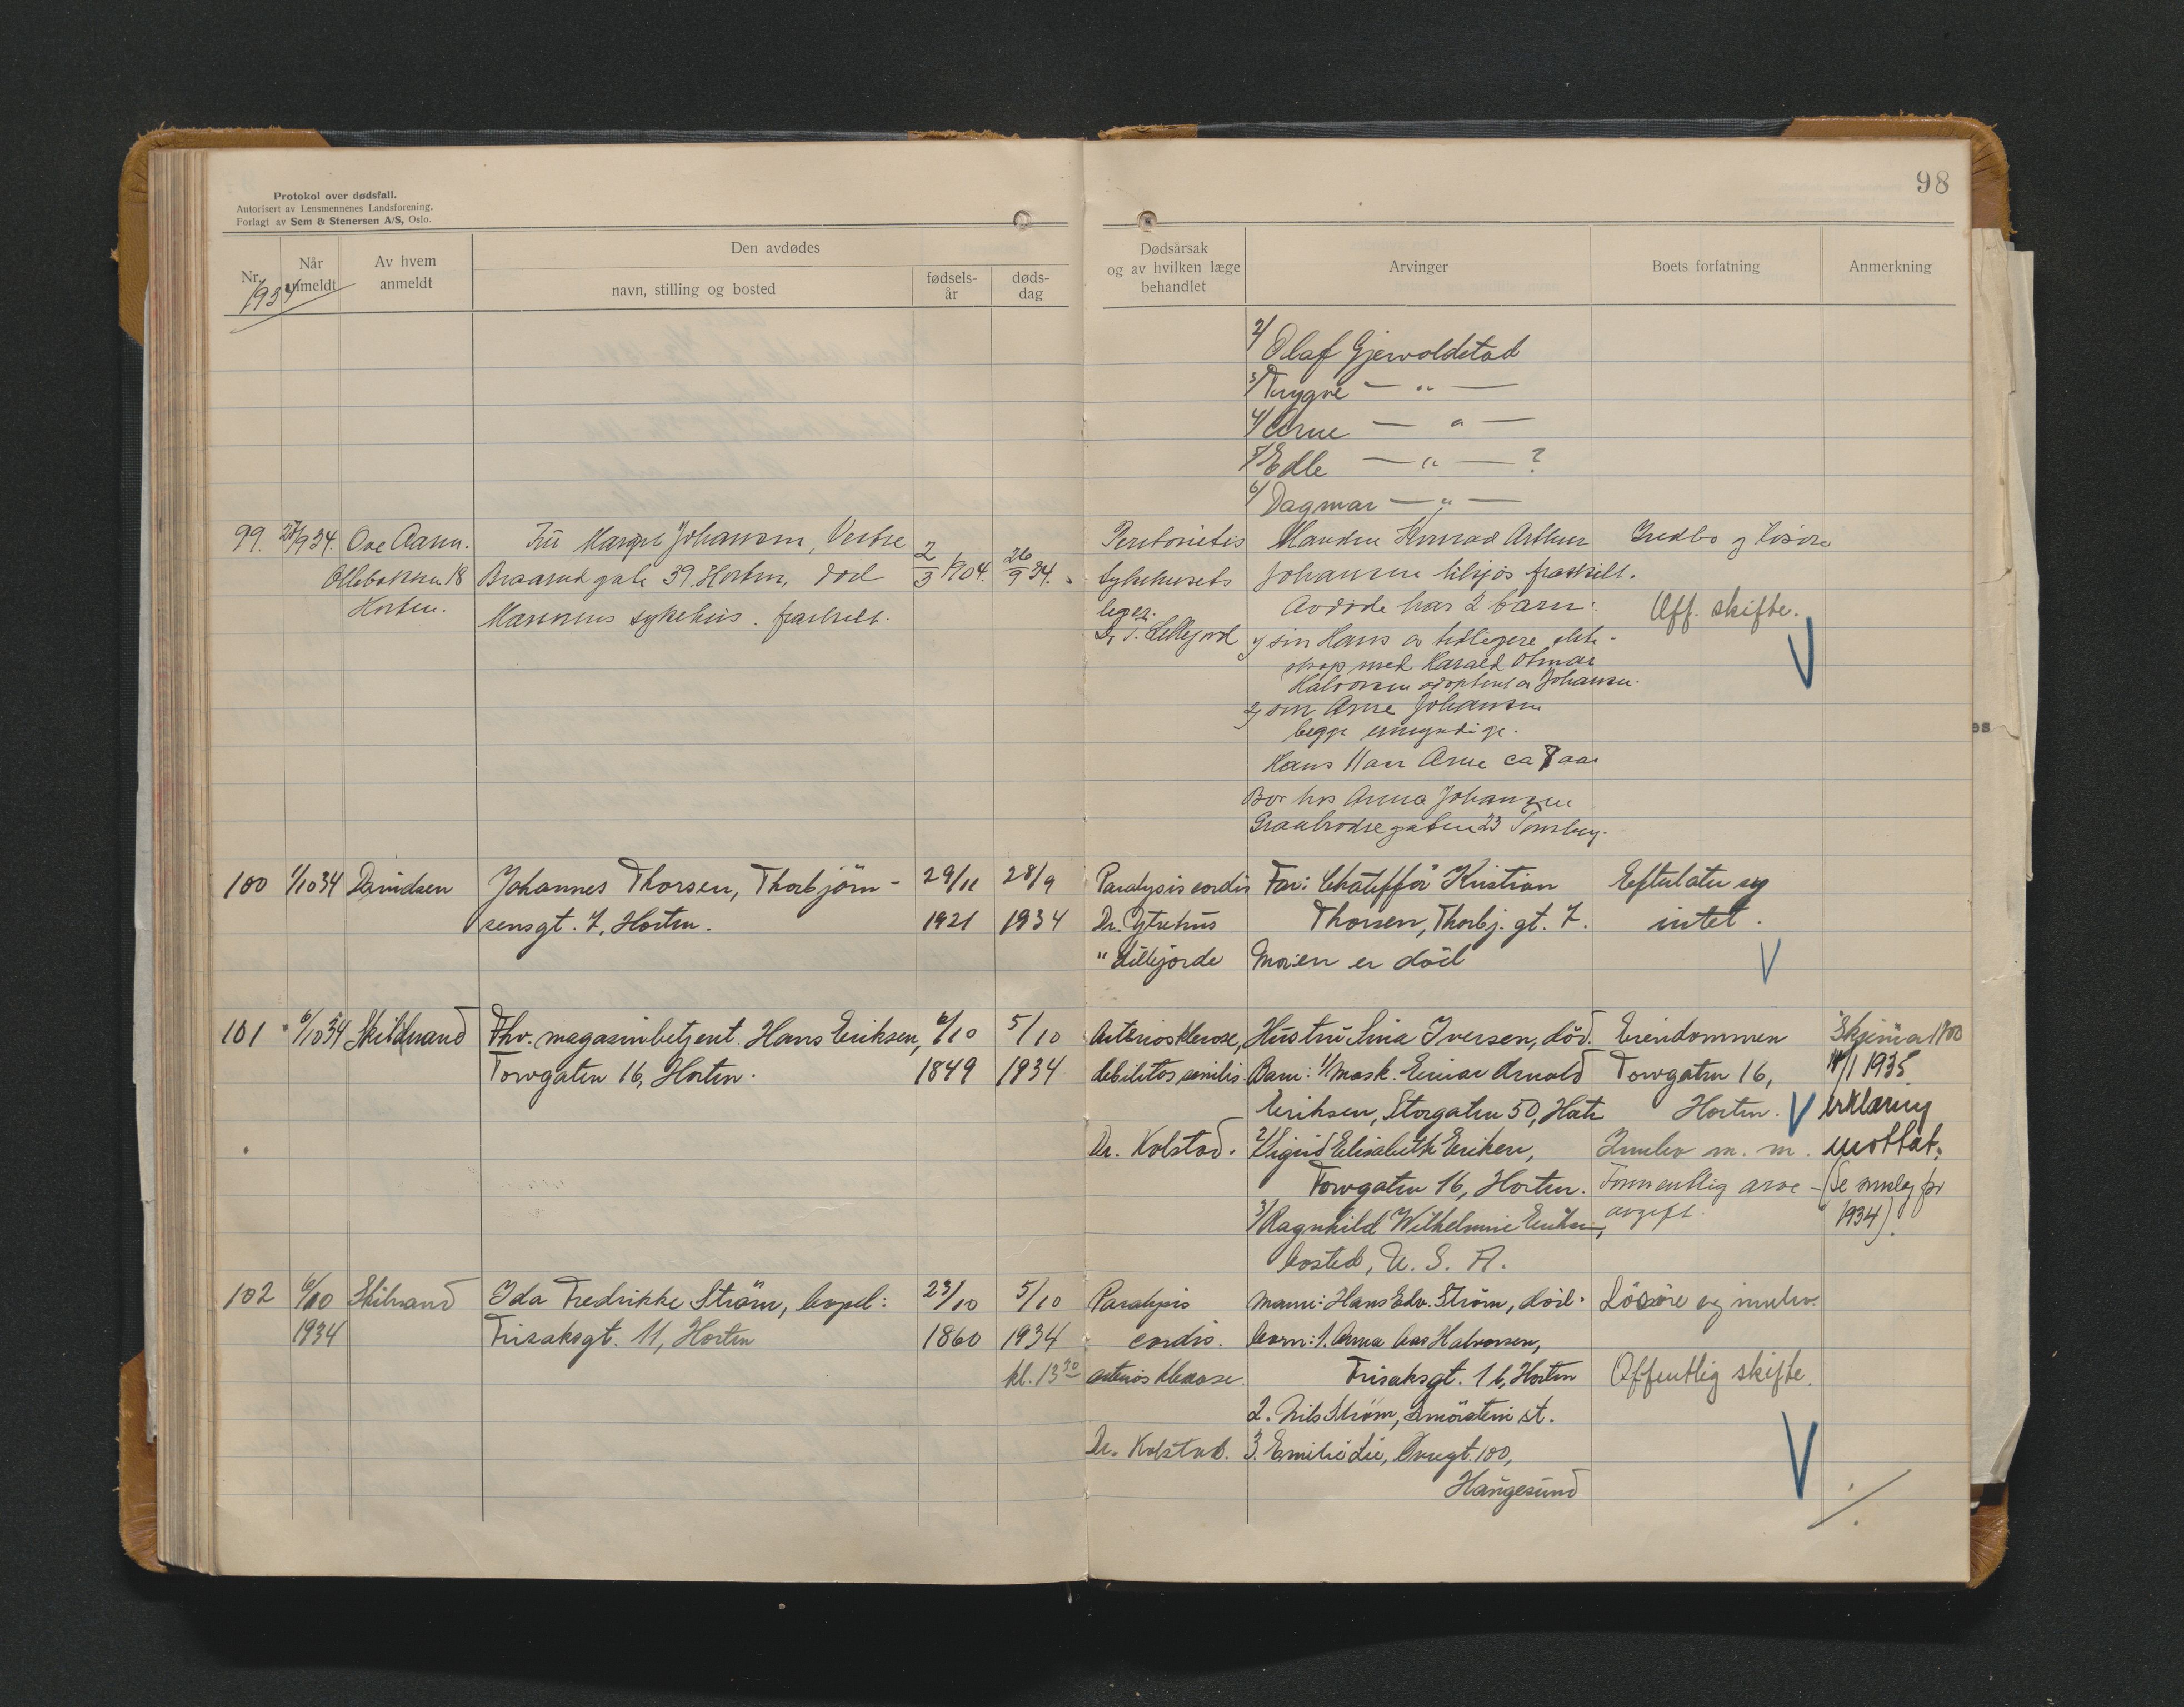 98
Protokol over dødsfall.
Autorisert av Lensmennenes Landsforening.
Forlagt av Sem & Stenersen A/S, Oslo.
Nr.
Når anmeldt
Av hvem anmeldt
Den avdødes
navn, stilling og bosted
fødsels-år
døds-dag
Dødsårsak
og av hvilken læge
behandlet
Arvinger
Boets forfatning
Anmerkning
1934
2/ Olaf Gjervoldstad
3/ Trygve — „ —
4/ Arne — „ —
5/ Edle — „ — ?
6/ Dagmar — „ —
99. 27/9 34. Ove Aarnn.
Ollebakken 18
Horten.
Fru Margit Johansen, Vestre
Braarud gate 39. Horten, död
Marinens sykehus. fraskilt.
2/3 1904.
26/9 34.
Peritonitis
Sykehusets
leger.
Dr T. Lillejord
Manden Konrad Arthur
Johansen tilsjøs fraskilt.
Avdöde har 2 barn:
1) sin Hans av tidligere ekte-
skap med Harald Otmar
Halvorsen adoptert av Johansen.
2) sin Arne Johansen
begge umyndige.
Hans 11 aar Arne ca 7 aar
Bor hos Anna Johansen
Graabrödregaten 23 Tönsberg.
Indbo og lösöre
Off. skifte.
100 1/10 34 Davidsen
Johannes Thorsen, Thorbjörn-
sensgt. 7, Horten.
29/11
1921
28/9
1934
Paralysis cordis
Dr. Ytrehus
" Lillejorde
Far: Chauffför Kristian
Thorsen, Thorbj. gt. 7.
Moren er död
Efterlater sig
intet.
101 6/10 34 Skilbrand
Fhv. magasinbetjent Hans Eriksen,
Torvgaten 16, Horten.
6/10
1849
5/10
1934
Arteriosklerose,
debilitas senilis.
Dr. Kolstad.
Hustru Lina Iversen, död.
Barn: 1/ Mask. Einar Arnold
Eriksen, Storgaten 50, Hort
2/ Sigrid Elisabeth Eriksen,
Torvgaten 16, Horten.
3/ Ragnhild Wilhelmine Eriksen,
bosted, U. S. A.
Eiendommen
Torvgaten 16,
Horten.
Innbo m. m.
Formentlig arve-
avgift.
Skjema 1900
1935
erklæring
mottat.
(Se innleg for
1934).
102 6/10
1934
Skilbrand
Ida Fredrikke Ström, bopel:
Frisaksgt. 11, Horten
23/10
1860
5/10
1934
kl. 13 30
Paralysis
cordis.
arteriosklerose.
Dr. Kolstad.
Mann: Hans Edv. Ström, död.
barn: 1. Anna Aas Halvorsen,
Frisaksgt. 16, Horten
2. Nils Ström, Smörstein st.
3. Emilie Lie, 100,
Haugesund
Lösöre og innbo.
Offentlig skifte.